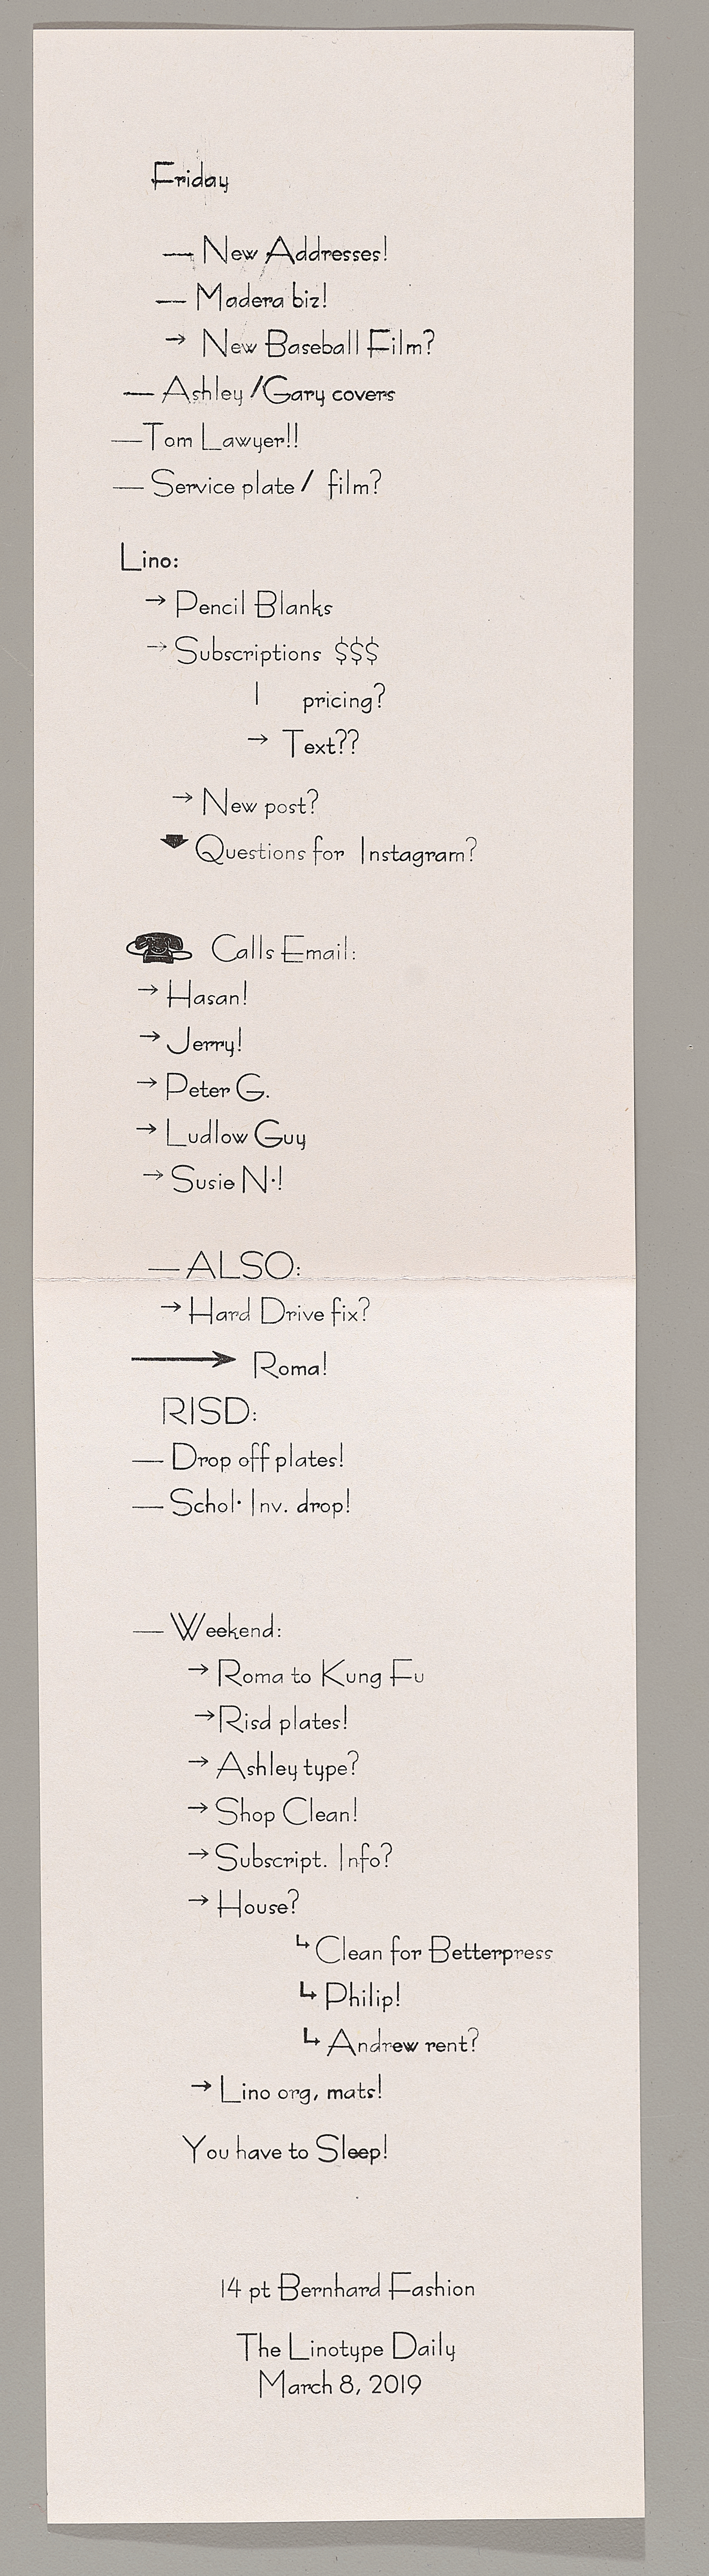 Friday
— New Addresses!
— Madera biz!
→ New Baseball Film?
— Ashley /Gary covers
—Tom Lawyer!!
— Service plate / film?
Lino:
→ Pencil Blanks
→ Subscriptions $$$
| pricing?
→ Text??
→ New post?
Questions for Instagram?
Calls Email:
→ Hasan!
→ Jerry!
→ Peter G.
→ Ludlow Guy
→ Susie N·!
— ALSO:
→ Hard Drive fix?
→ Roma!
RISD:
— Drop off plates!
— Schol· Inv. drop!
— Weekend:
→ Roma to Kung Fu
→Risd plates!
→ Ashley type?
→ Shop Clean!
→ Subscript. Info?
→ House?
↳ Clean for Betterpress
↳ Philip!
↳ Andrew rent?
→ Lino org, mats!
You have to Sleep!
14 pt Bernhard Fashion
The Linotype Daily
March 8, 2019